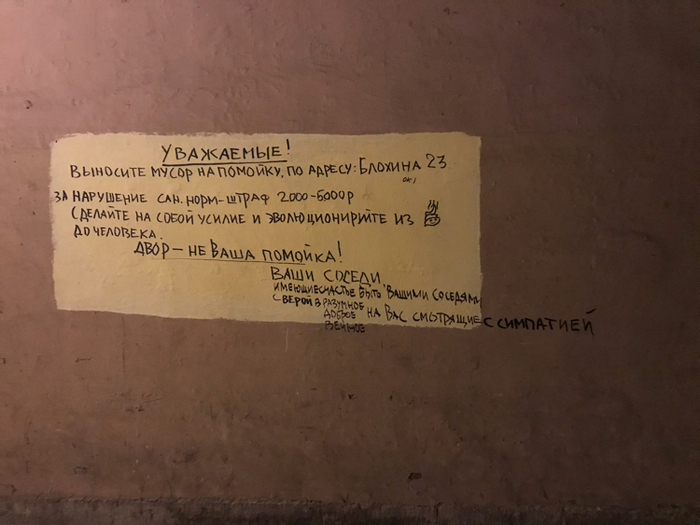 УВАЖАЕМЫЕ!
ВЫНОСИТЕ МУСОР НА ПОМОЙКУ, ПО АДРЕСУ: БЛОХИНА 23
ЗА НАРУШЕНИЕ САН. НОРМ-ШТРАФ 2000-5000Р
СДЕЛАЙТЕ НА СОБОЙ УСИЛИЕ И ЭВОЛЮЦИОНИРУЙТЕ ИЗ
ДО ЧЕЛОВЕКА.
ДВОР - НЕ ВАША ПОМОЙКА!
ВАШИ СОСЕДИ
ИМЕЮЩИЕ СЧАСТЬЕ БЫТЬ ВАШИМИ СОСЕДЯМИ
С ВЕРОЙ В РАЗУМНОЕ
ДОБРОЕ НА ВАС СМОТРЯЩИЕ С СИМПАТИЕЙ